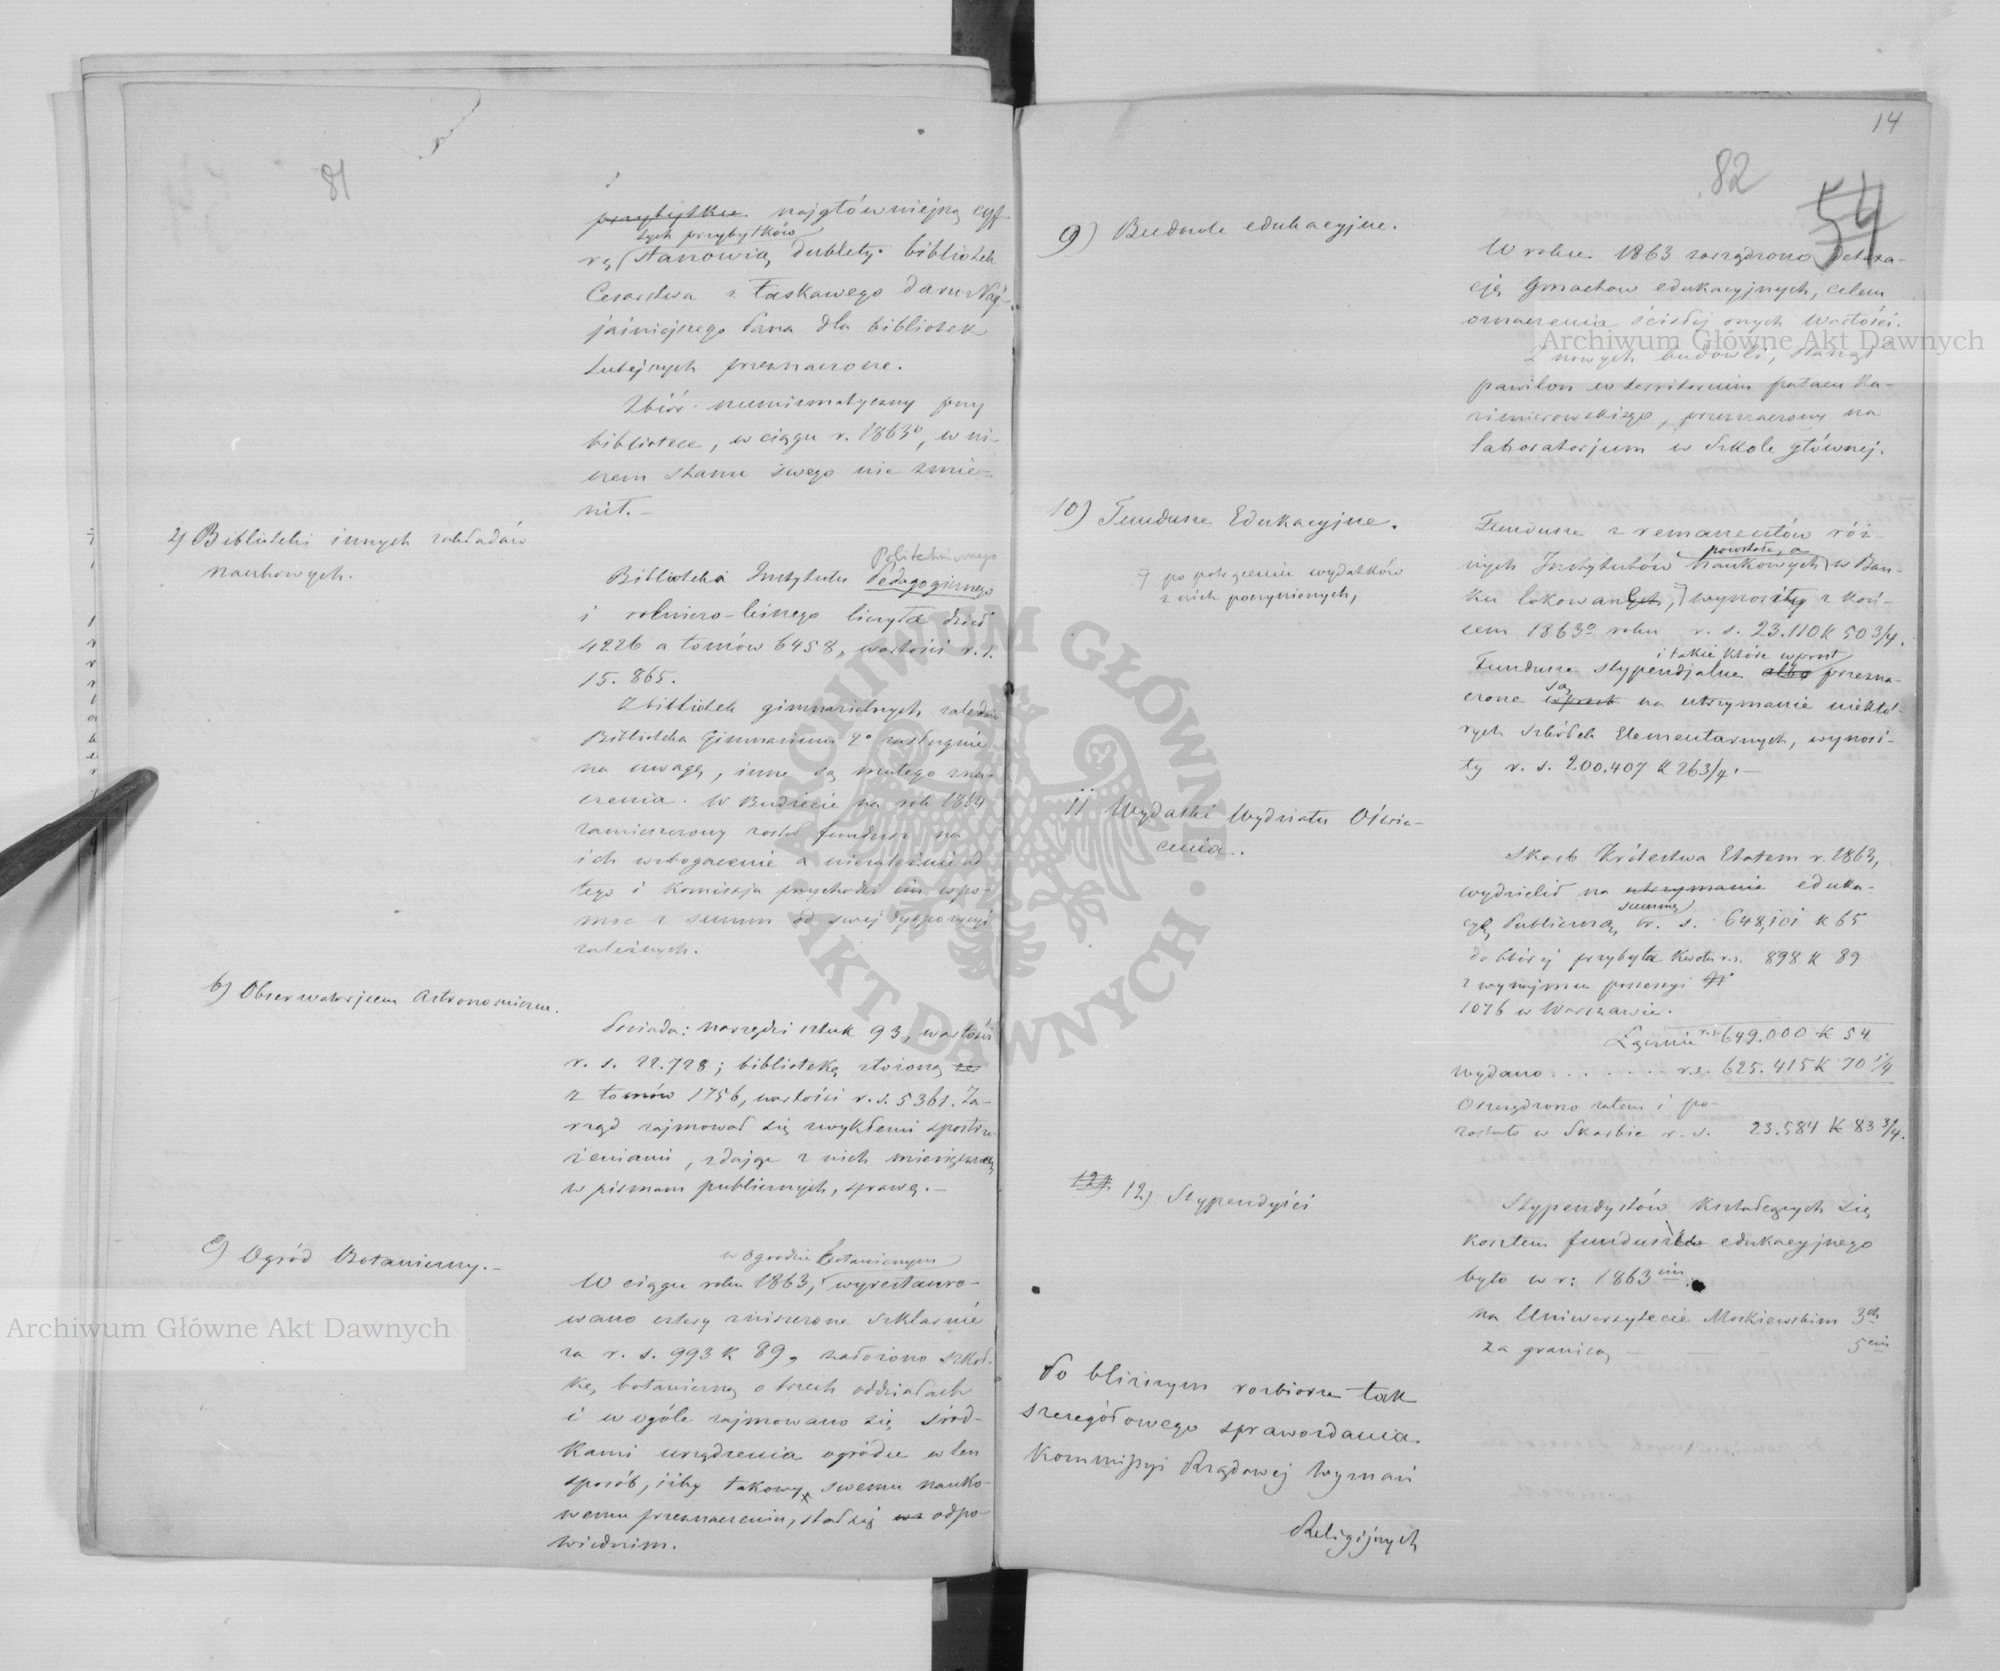 81
przybytku najgłówniejszą cyf-
tych przybytków
rę stanowią dublety bibliotek
Cesarstwa z łaskawego daru Naj-
jaśniejszego Pana dla bibliotek
tutejszych przeznaczone.
Zbiór numizmatyczny przy
bibliotece, w ciągu r. 1863o, w ni-
czem stanu swego nie zmie-
nił.–
2) Biblioteki innych zakładów
naukowych.
Politechnicznego
Biblioteka Instytutu Pedagogicznego
i rolniczo-leśnego liczyła dzieł
4226 a tomów 6458, wartości r.s.
15.865.
Z bibliotek gimnazialnych zaledwie
Biblioteka Gimnazium 2o zasługuje
na uwagę, inne są małego zna-
czenia. W Budżecie na rok 1864
zamieszczony został fundusz na
ich wzbogacenie a niezależnie od
tego i Komissja przychodzi im w po-
moc z summ od swej dyspozycyi
zależnych.
b) Obserwatorjum Astronomiczne.
Posiada: narzędzi sztuk 93, wartości
r. s. 22.728; bibliotekę złożoną
z tomów 1756, wartości r.s. 5361. Za-
rząd zajmował się zwykłemi spostrze-
żeniami, zdając z nich miesięczną
w pismach publicznych, sprawę.–
c) Ogród Botaniczny.–
w ogrodzie botanicznym
W ciągu roku 1863, wyrestauro-
wano cztery zniszczone szklarnie
za r. s. 993 k 89, założono szkół-
kę botaniczną o trzech oddziałach
i w ogóle zajmowano się środ-
kami urządzenia ogrodu w ten
sposób, iżby takowy swemu nauko-
wemu przeznaczeniu, stał się odpo-
wiednim.
14
82
54
9) Budowle edukacyjne.
W roku 1863 zarządzono detaxa-
cję Gmachów edukacyjnych, celem
oznaczenia ściślej onych wartości.
Z nowych budowli, stanął
pawilon w territorium pałacu Ka-
zimirowskiego, przeznaczony na
laboratorjum w Szkole głównej.
10) Fundusze Edukacyjne.
Fundusze z remanentów róż-
powstałe, a
nych Instytutów naukowych w Ban-
po potrąceniu wydatków
z nich poczynionych,
ku lokowanych, wynosiły z koń-
cem 1863o roku r. s. 23.110 k 50 3/4.
i takie które wprost
Fundusze stypendjalne albo przezna-
są
czone wprost na utrzymanie niektó-
rych szkółek Elementarnych, wynosi-
ły r. s. 200.407 k 26 3/4.–
11 Wydatki Wydziału Oświe-
cenia.
Skarb Królestwa Etatem r. 1863,
wydzielił na utrzymanie eduka-
summę
cyę Publiczną, r. s. 648,101 k 65
do której przybyła kwota r.s. 898 k 89
z wynajmu possesyi №
1076 w Warszawie.
Łącznie r.s. 649.000 k 54
Wydano . . . . . . . r.s. 625.415 k 70 1/4
Oszczędzono zatem i po-
zostało w Skarbie r. s. 23.584 k 83 3/4.
12) 12) Stypendyści
Stypendystów kształcących się
kosztem funduszu edukacyjnego
było w r: 1863cim.
na Uniwersytecie Moskiewskim 3ch
za granicą – – – 5ciu
Po bliższym rozbiorze tak
szczegółowego sprawozdania
Kommissyi Rządowej Wyznań
Religijnych
Archiwum Główne Akt Dawnych
Archiwum Główne Akt Dawnych
ARCHIWUM GŁÓWNE · AKT DAWNYCH ·